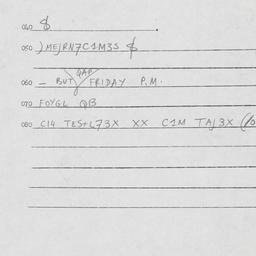 040 $
050 )MEJRN7C1M3S $
GAP
060 — BUT FRIDAY P.M.
070 FOYGL QB
080 C14 TES+L73X XX C1M TAJ3X (10